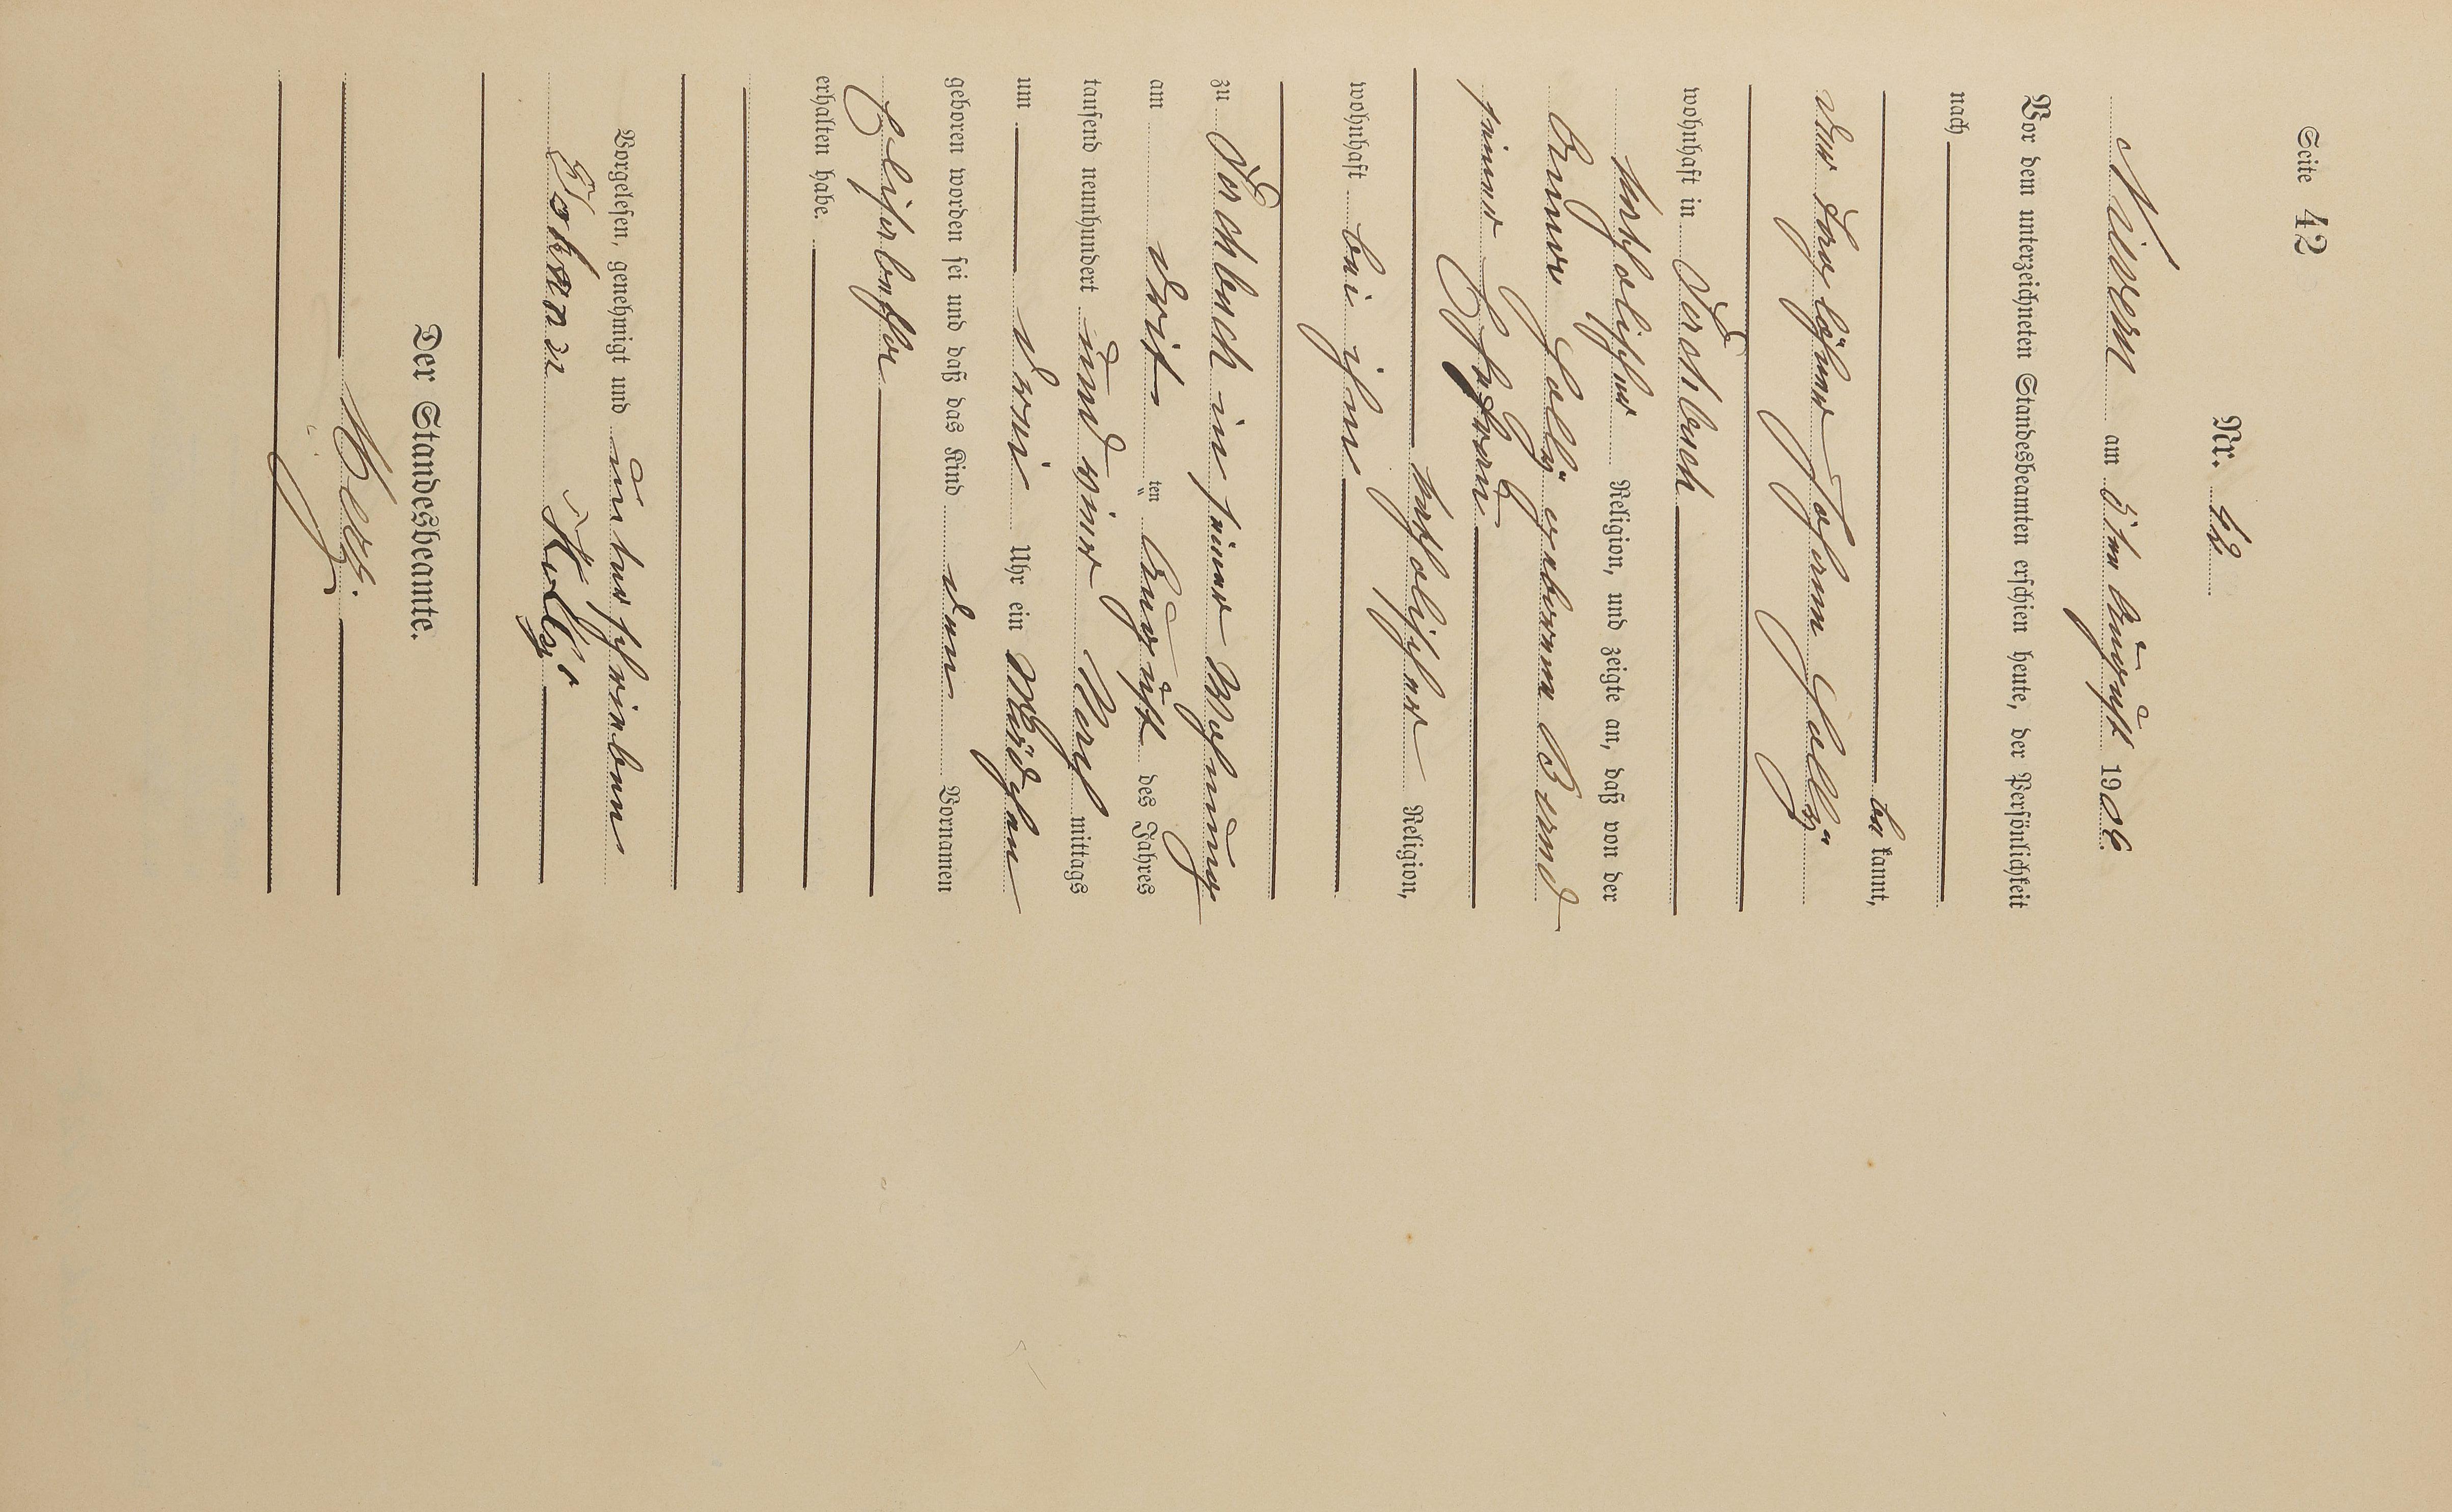 Seite 42
Nr. 42
Nivern am 5ten August 1901.
Vor dem unterzeichneten Standesbeamten erschien heute, der Persönlichkeit
nach
be kannt,
der Tagelöhner Johann
wohnhaft in Dersbusch
katholischer Religion, und zeigte an, daß von der
Anna geborenen
seiner Ehefrau
katholischer Religion,
wohnhaft bei ihm
zu in seiner Wohnung
am drit ten August des Jahres
tausend neunhundert und eins Nach mittags
um drei Uhr ein Mädchen
geboren worden sei und daß das Kind den Vornamen
Elisabetha
erhalten habe.
Vorgelesen, genehmigt und unterschrieben
Johann
Der Standesbeamte.